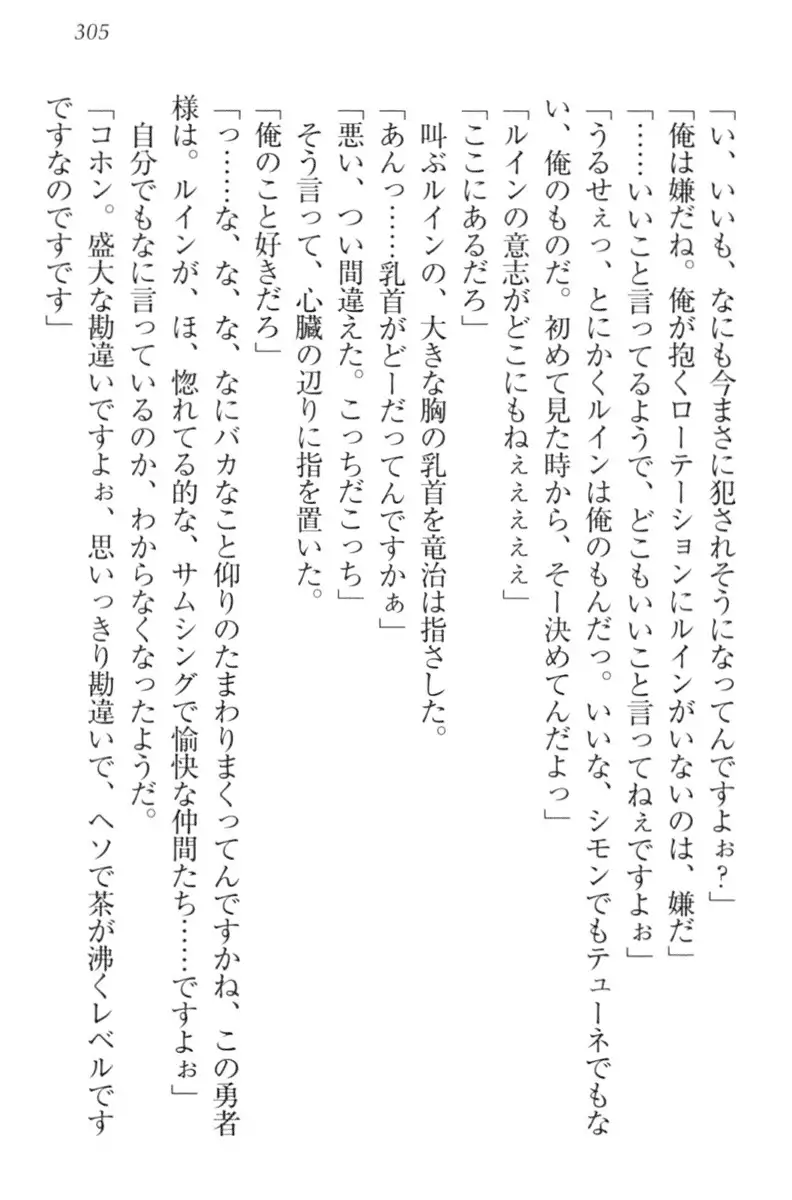 305
「い、いいも、なにも今まさに犯されそうになってんですよぉ?」
「俺は嫌だね。俺が抱くローテーションにルインがいないのは、嫌だ」
「……いいこと言ってるようで、どこもいいこと言ってねぇですよぉ」
「うるせぇっ、とにかくルインは俺のもんだっ。いいな、シモンでもテューネでもな
い、俺のものだ。初めて見た時から、そー決めてんだよっ」
「ルインの意志がどこにもねぇぇぇぇぇ」
「ここにあるだろ」
叫ぶルインの、大きな胸の乳首を竜治は指さした。
「あんっ……乳首がどーだってんですかぁ」
「悪い、つい間違えた。こっちだこっち」
そう言って、心臓の辺りに指を置いた。
「俺のこと好きだろ」
「っ……な、な、な、なにバカなこと仰りのたまわりまくってんですかね、この勇者
様は。ルインが、ほ、惚れてる的な、サムシングで愉快な仲間たち……ですよぉ」
自分でもなに言っているのか、わからなくなったようだ。
「コホン。盛大な勘違いですよぉ、思いっきり勘違いで、ヘソで茶が沸くレベルです
ですなのですです」